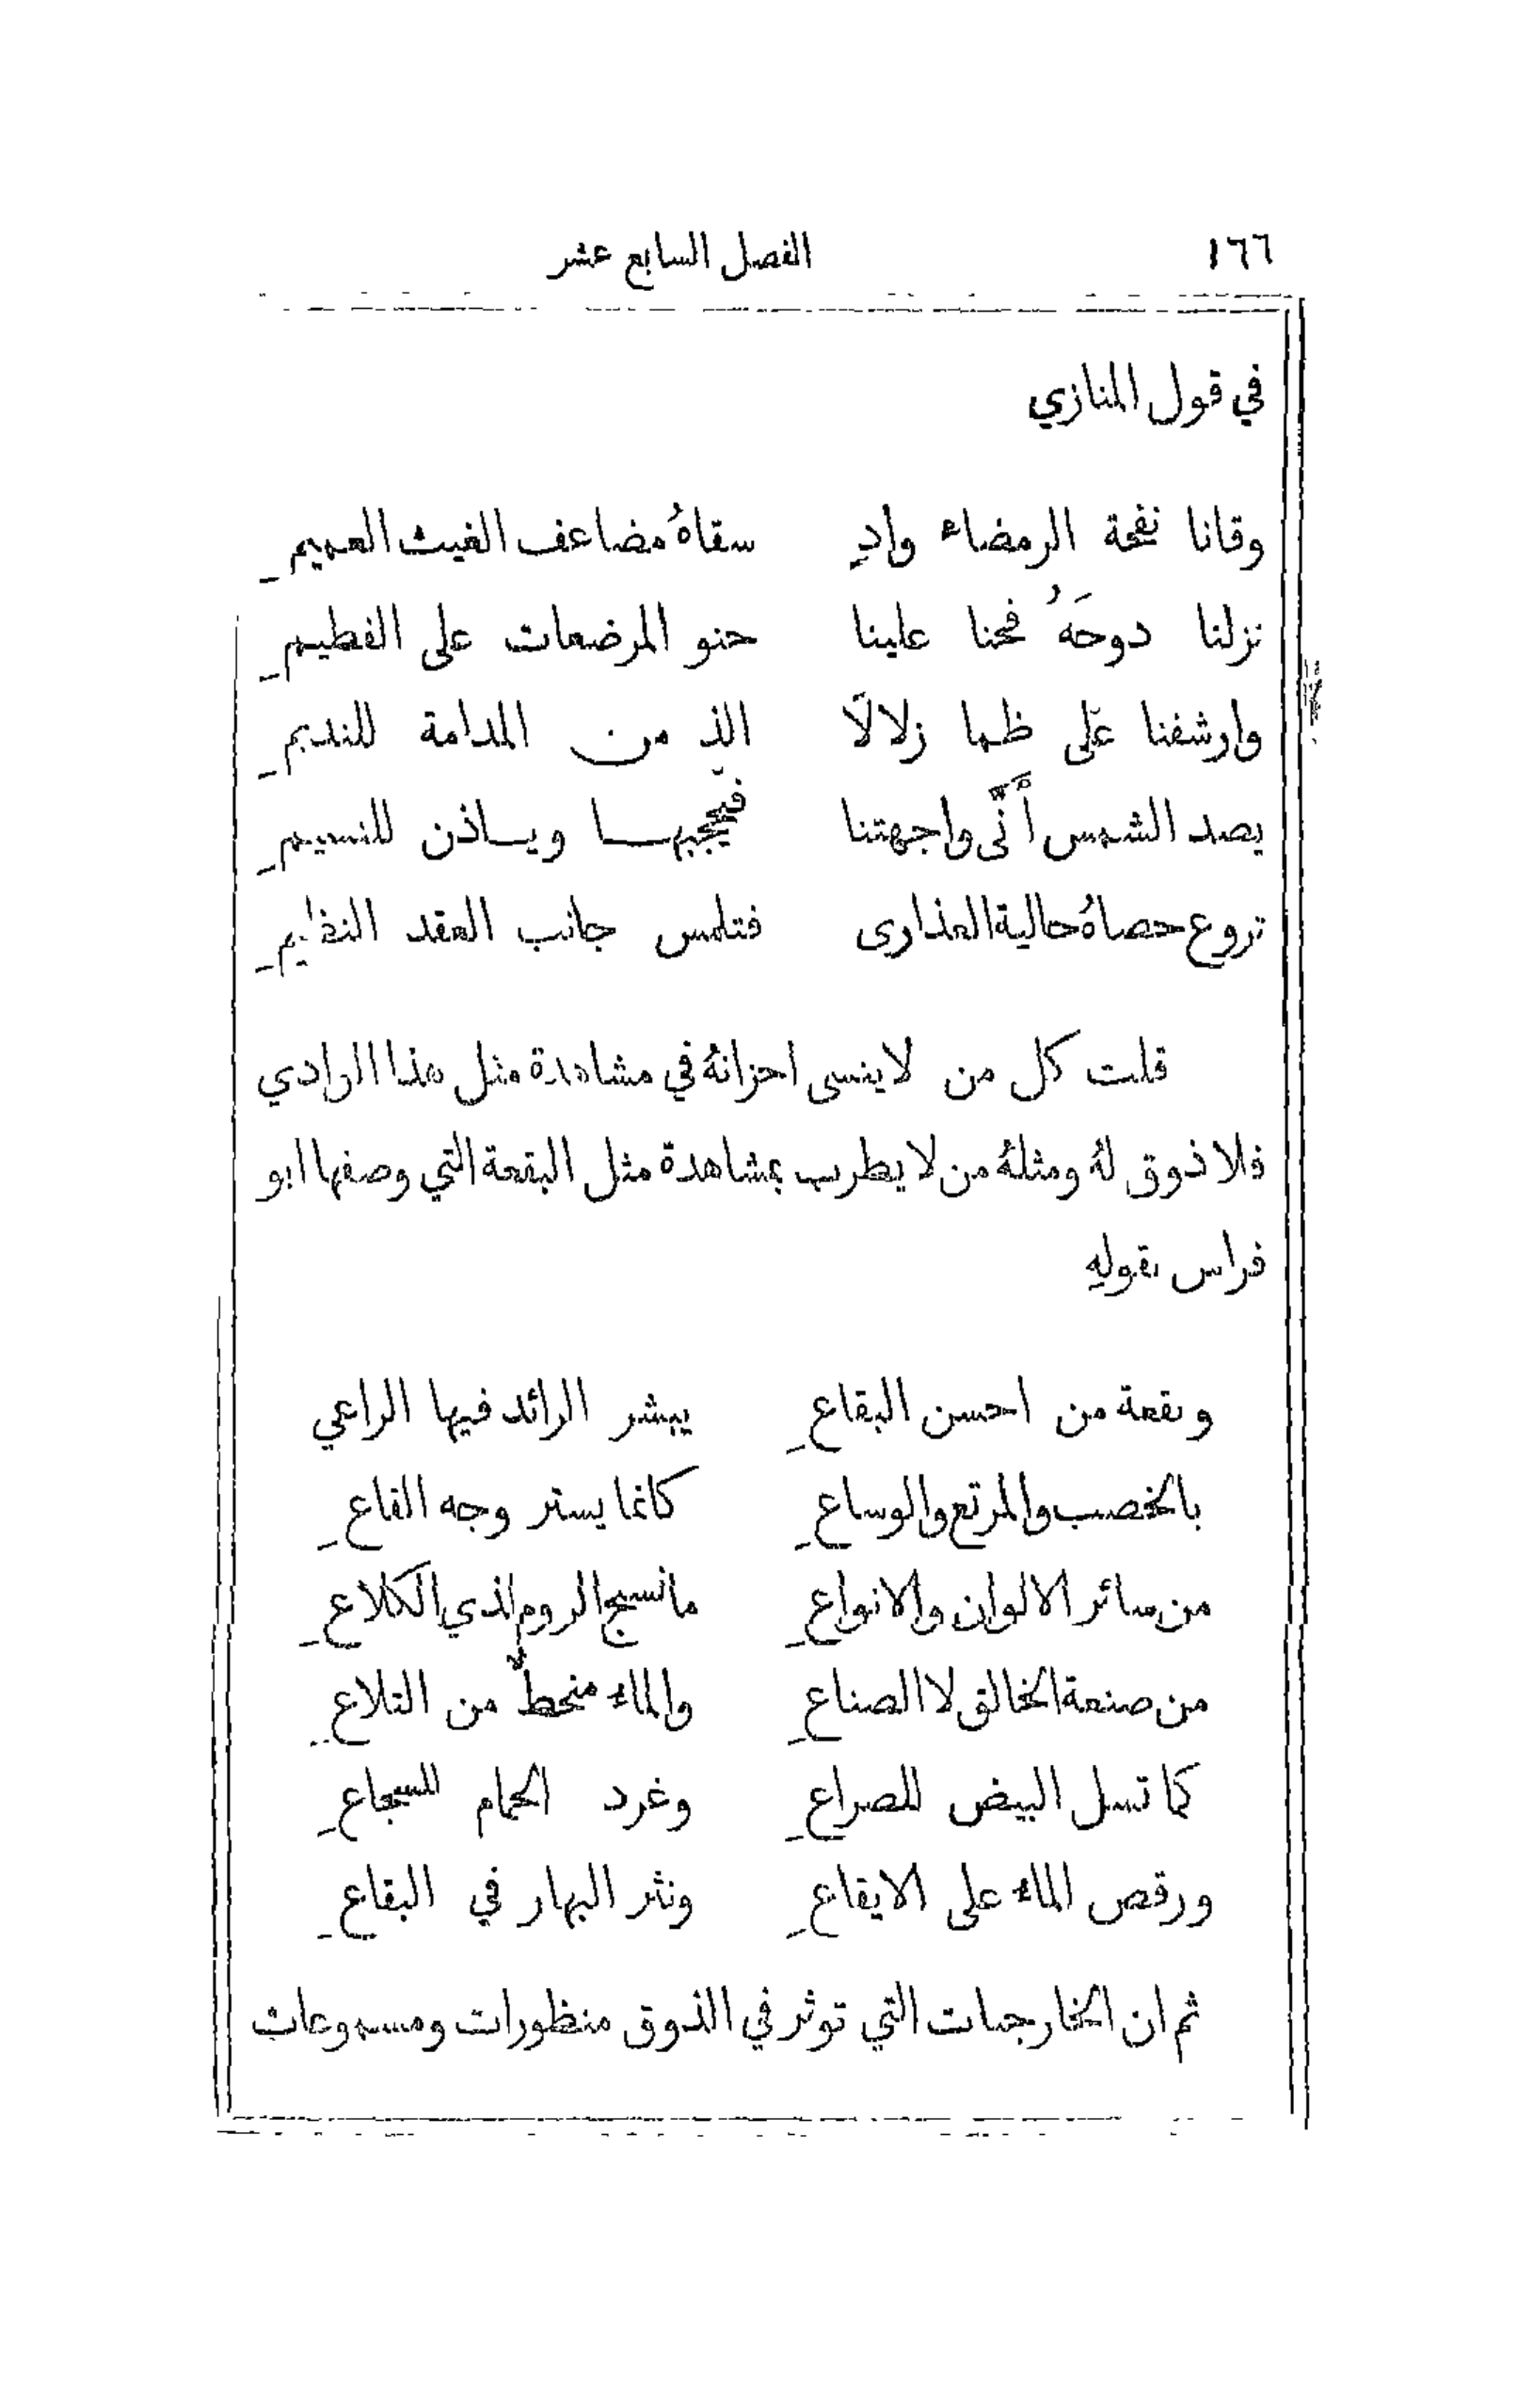 ١٦٦ الفصل السابع عشر
في قول المنازي
وقانا نفحة الرمضاء وادِ سقاهُ مضاعف الغيث العميمِ
نزلنا دوحَهُ فحنا علينا حنو المرضعات على الفطيمِ
وارشفنا على ظما زلالًا الذ من المدامة للنديمِ
يصد الشمس أَنَّى واجهتنا فيحجبها وياذن للنسيمِ
تروع حصاهُ حالية العذارى فتلمس جانب العقد النظيمِ
قلت كل من لا ينسى احزانهُ في مشاهدة مثل هذا الوادي
فلا ذوق لهُ ومثلهُ من لا يطرب بمشاهدة مثل البقعة التي وصفها ابو
فراس بقولهِ
وبقعة من احسن البقاعِ يبشر الرائد فيها الراعي
بالخصب والمرتع والوساعِ كانما يستر وجه القاعِ
من سائر الالوان والانواعِ ما نسج الروم لذي الكلاعِ
من صنعة الخالق لا الصناعِ والماء منحطٌّ من التلاعِ
كما تسل البيض للصراعِ وغرد الحمام للسجاعِ
ورقص الماء على الايقاعِ ونثر البهار في البقاعِ
ثم ان الخارجيات التي توثر في الذوق منظورات ومسموعات